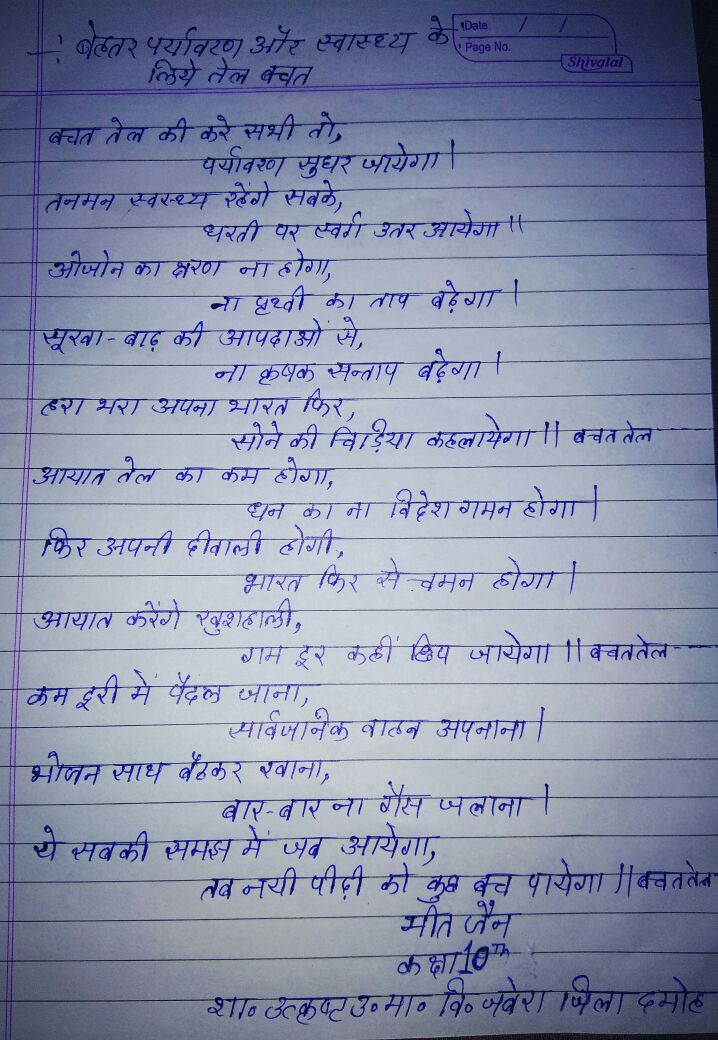 Date / /
Page No.
Shivalal
-: बेहतर पर्यावरण और स्वास्थ्य के
लिये तेल बचत
बचत तेल की करे सभी तो,
पर्यावरण सुधर जायेगा |
तनमन स्वस्थ्य रहेंगे सबके,
धरती पर स्वर्ग उतर आयेगा ||
ओजोन का क्षरण ना होगा,
ना पृथ्वी का ताप बढ़ेगा |
सूखा-बाढ़ की आपदाओं से,
ना कृषक सन्ताप बढ़ेगा |
हरा भरा अपना भारत फिर,
सोने की चिड़िया कहलायेगा || बचत तेल ----
आयात तेल का कम होगा,
धन का ना विदेश गमन होगा |
फिर अपनी दीवाली होगी,
भारत फिर से चमन होगा |
आयात करेंगे खुशहाली,
गम दूर कहीं छिप जायेगा || बचत तेल ----
कम दूरी में पैदल जाना,
सार्वजनिक वाहन अपनाना |
भोजन साथ बैठकर खाना,
बार-बार ना गैस जलाना |
ये सबकी समझ में जब आयेगा,
तब नयी पीढ़ी को कुछ बच पायेगा || बचत तेल
मीत जैन
कक्षा 10th
शा॰ उत्कृष्ट उ॰ मा॰ वि॰ जबेरा जिला दमोह